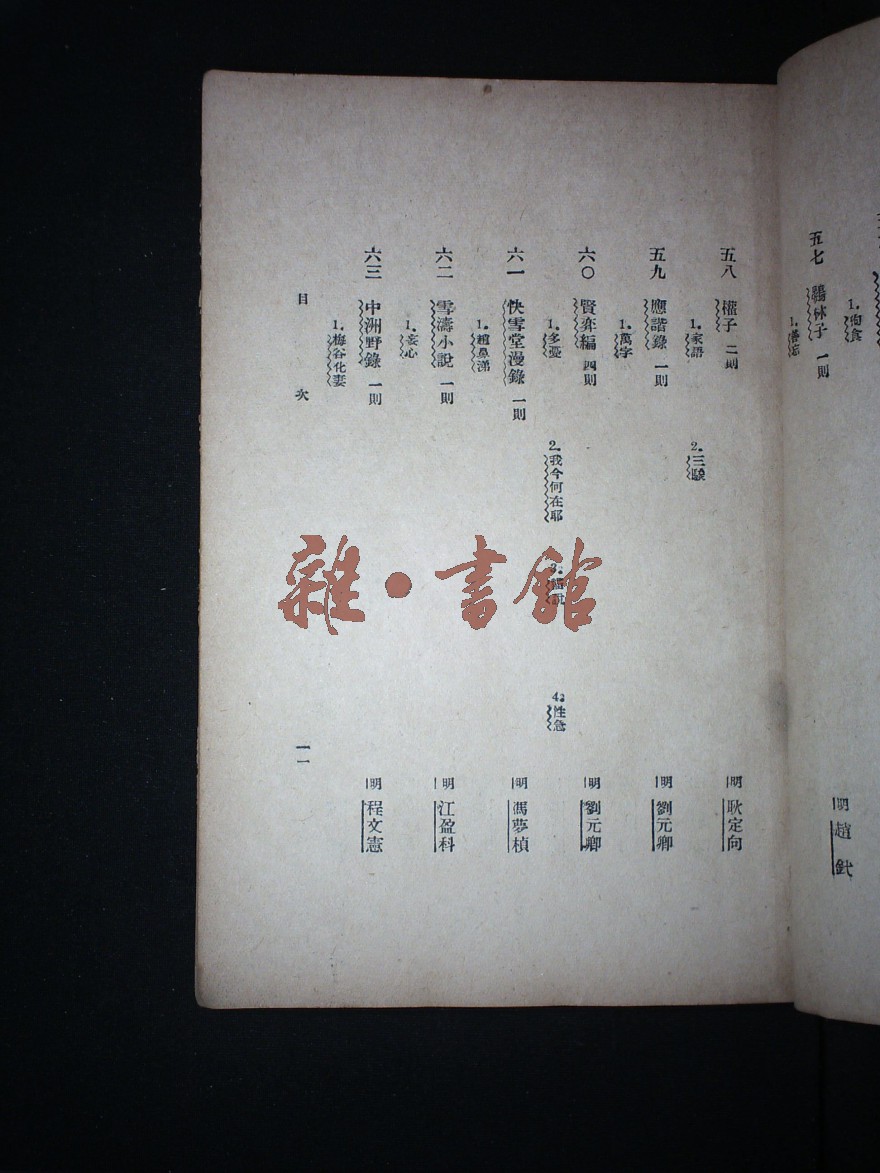 1. 徇食
五七 鷄林子 一則 明 趙釴
1. 善忘
五八 權子 二則 明 耿定向
1. 家語 2. 三駿
五九 應諧錄 一則 明 劉元卿
1. 萬字
六〇 賢弈編 四則 明 劉元卿
1. 多憂 2. 我今何在耶 4. 性急
六一 快雪堂漫錄 一則 明 馮夢楨
1. 趙鼻涕
六二 雪濤小說 一則 明 江盈科
1. 妄心
六三 中洲野錄 一則 明 程文憲
1. 梅谷化妻
目次 一一
雜·書館